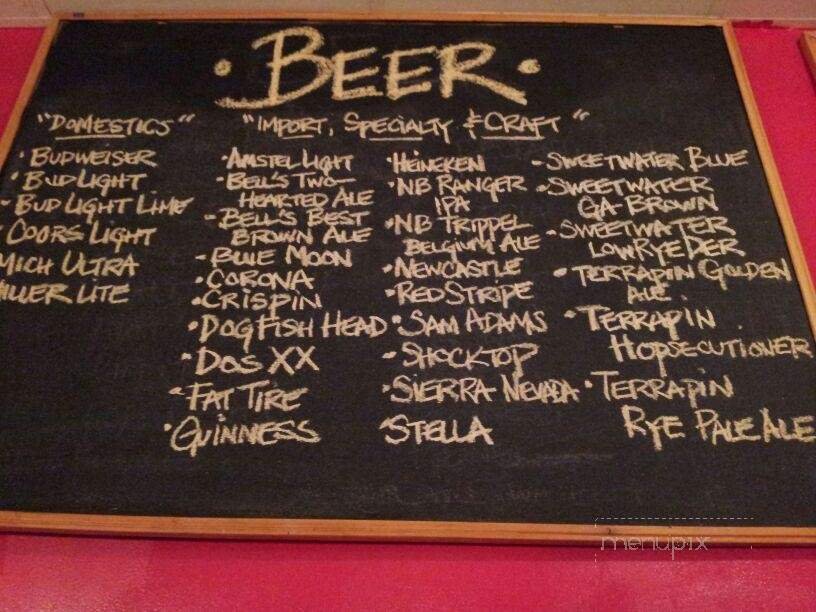 • BEER •
"DOMESTICS"
• BUDWEISER
• BUD LIGHT
• BUD LIGHT LIME
• COORS LIGHT
MICH ULTRA
MILLER LITE
"IMPORT, SPECIALTY & CRAFT"
• AMSTEL LIGHT
• BELL'S TWO-
HEARTED ALE
• BELL'S BEST
BROWN ALE
• BLUE MOON
• CORONA
• CRISPIN
• DOGFISH HEAD
• DOS XX
• FAT TIRE
• GUINNESS
• HEINEKEN
• NB RANGER
IPA
• NB TRIPPEL
BELGIUM ALE
• NEWCASTLE
• RED STRIPE
• SAM ADAMS
• SHOCKTOP
• SIERRA NEVADA
• STELLA
• SWEETWATER BLUE
• SWEETWATER
GA BROWN
• SWEETWATER
LOWRYEDER
• TERRAPIN GOLDEN
ALE
• TERRAPIN
HOPSECUTIONER
• TERRAPIN
RYE PALE ALE
menupix